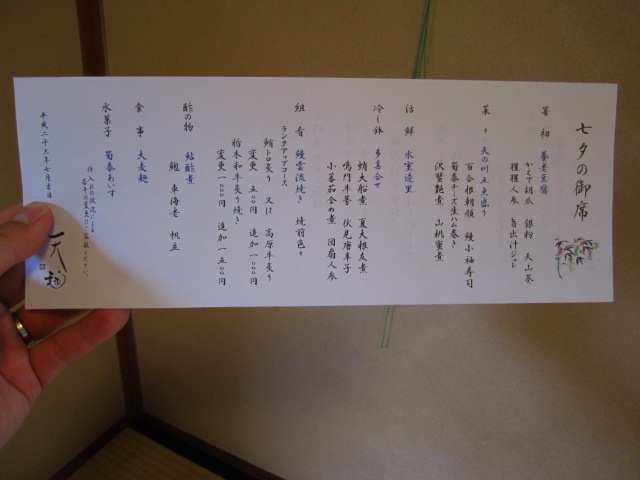 七夕の御席
箸初 養老豆腐
かもす胡瓜 銀粉 天山葵
猩猩人参 旨出汁ジュレ
菜々 天の川五色盛り
百合根朝顔 鰻小袖寿司
蜀黍チーズ生ハム巻き
沢蟹艶煮 山桃蜜煮
活鮮 氷室造里
冷し鉢 多喜合せ
蛸大船煮 夏大根友煮
鳴門芋蒡 伏見唐辛子
小芋茄含め煮 団扇人参
組肴 鰻雲流焼き 焼前色々
ランクアップコース
鮪トロ炙り 又は 高原牛炙り
変更 五〇〇円 追加 一〇〇〇円
栃木和牛炙り焼き
変更 一〇〇〇円 追加 一五〇〇円
酢の物 鮎酢煮
鮑 車海老 帆立
食事 大麦麺
水菓子 蜀黍あいす
仕入れの状況により
若干の変更はご容赦ください。
平成二十三年七月吉日